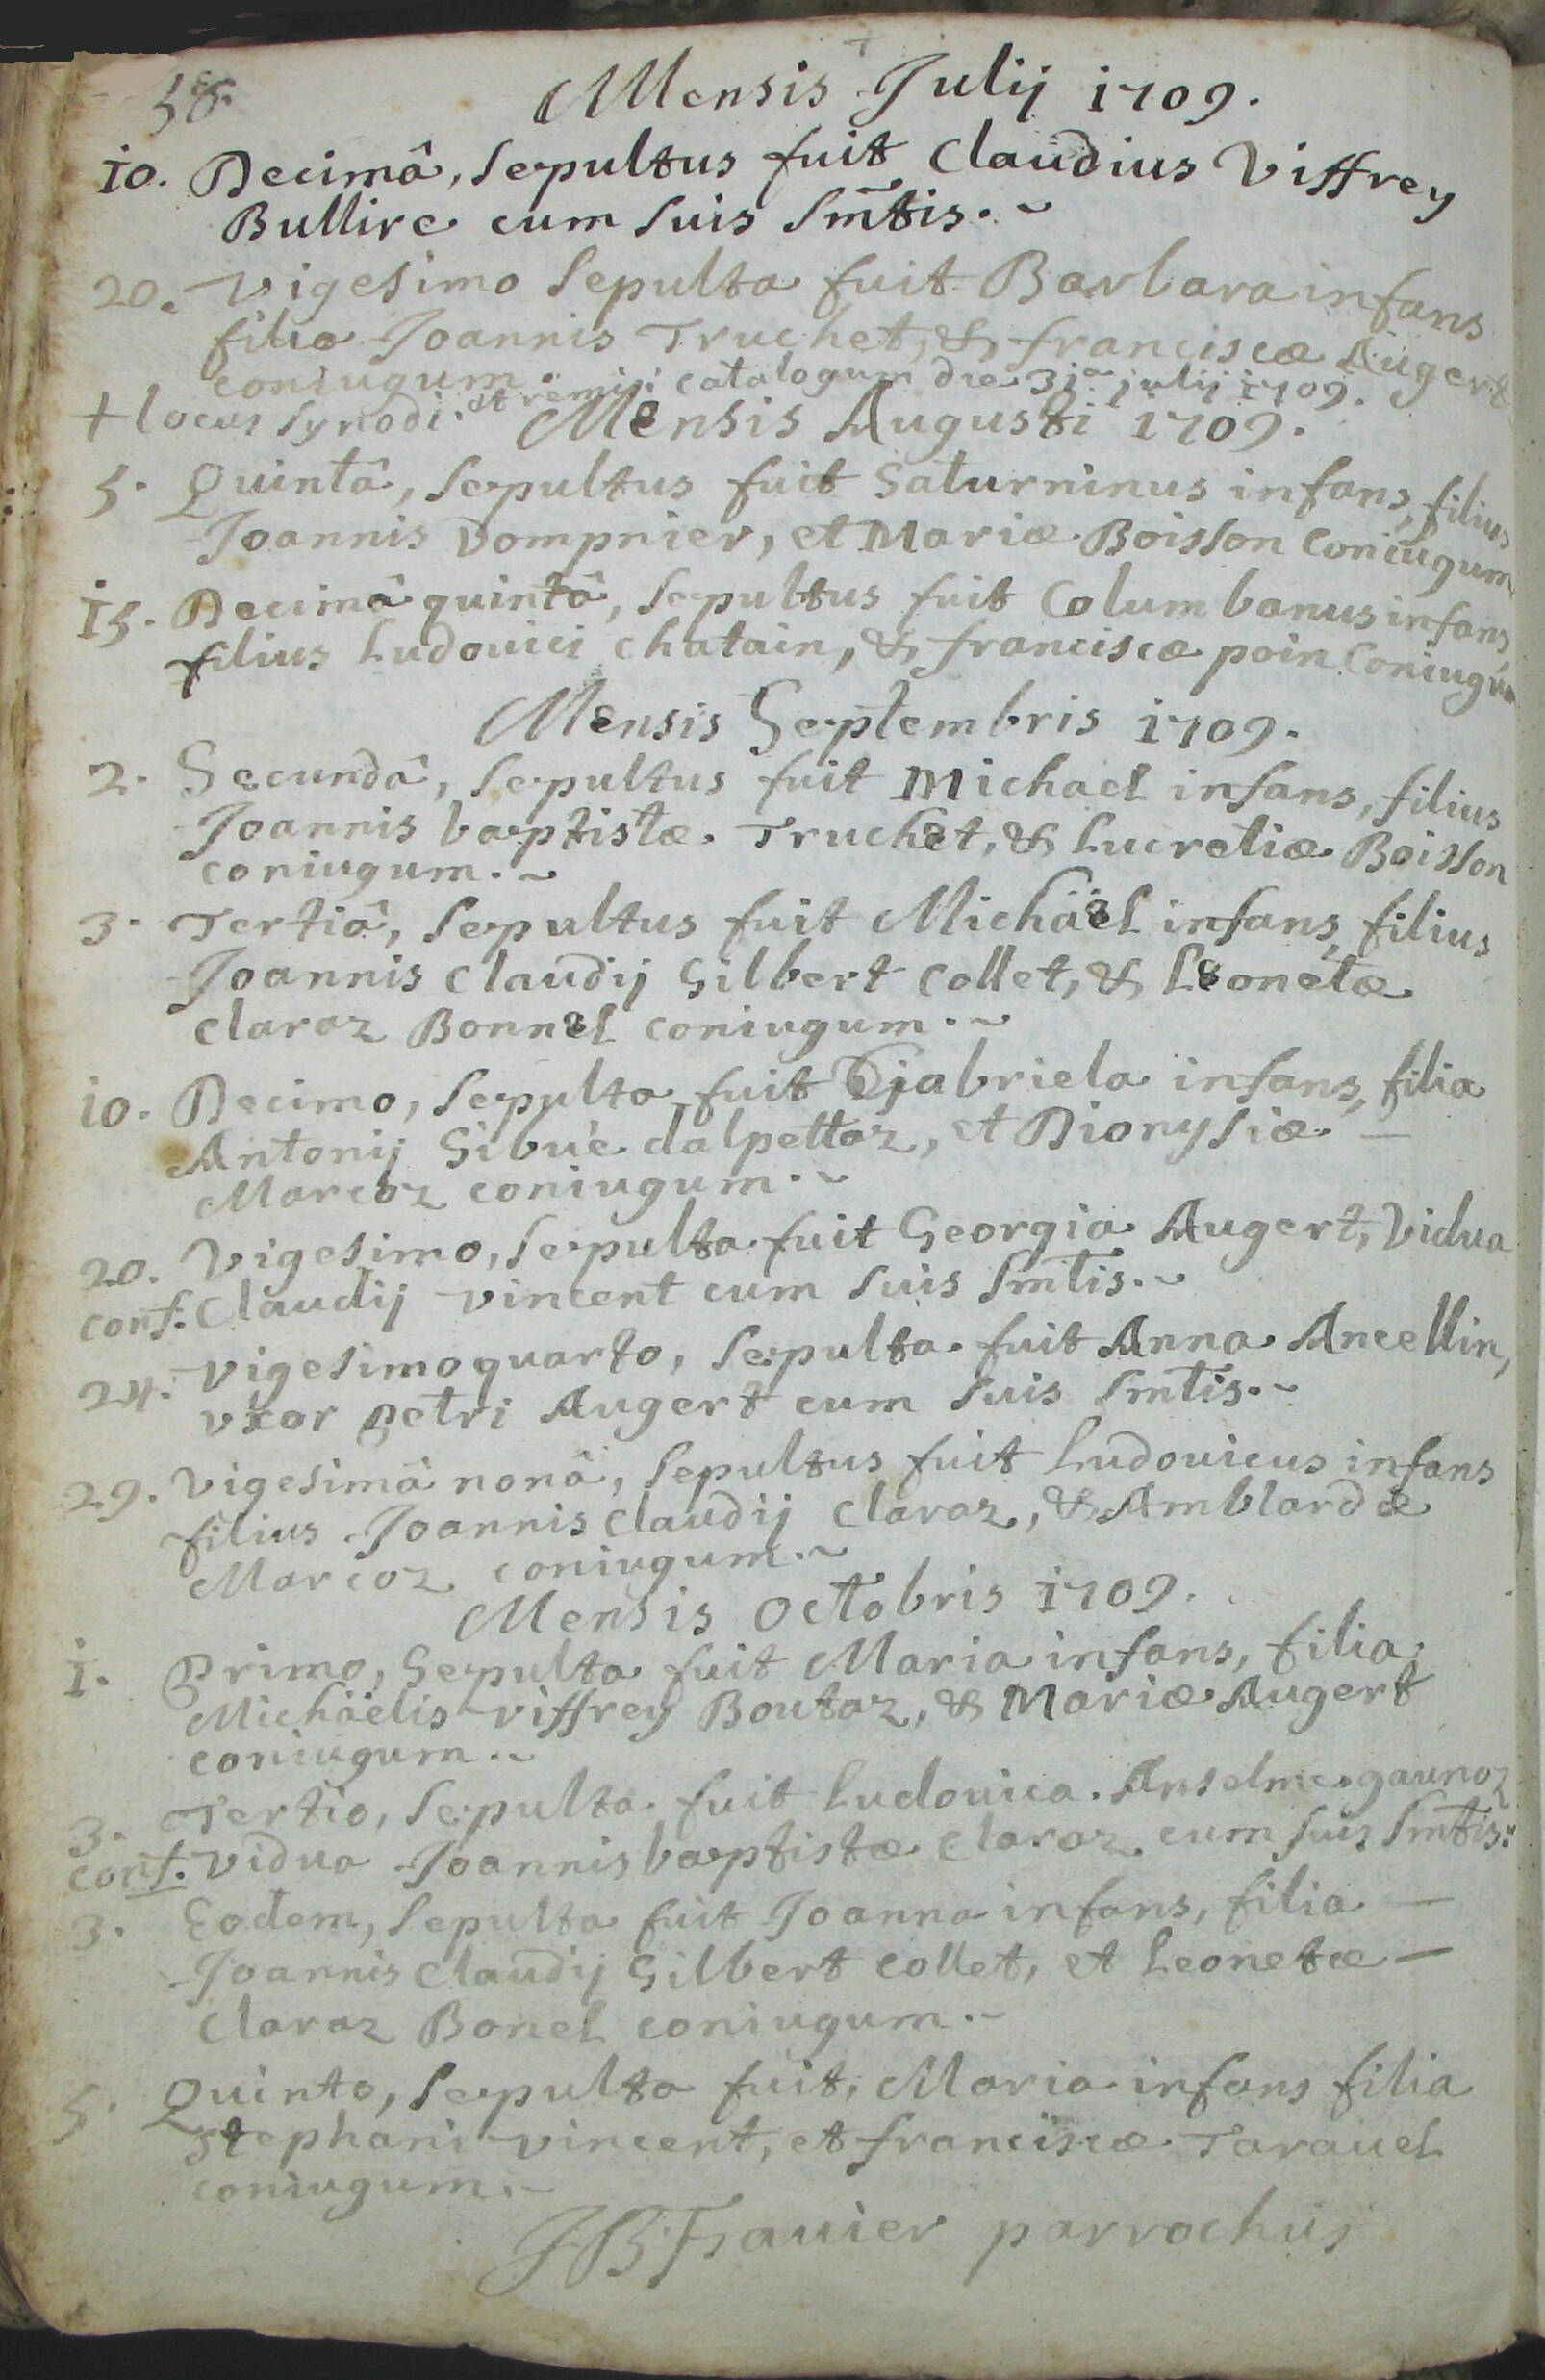 58.
Mensis Julij 1709.
10. Decimâ, sepultus fuit Claudius Viffrey
Bullire cum suis Sm̃tis.~
20. Vigesimo sepulta fuit Barbara infans
filia Joannis Truchet, & franciscæ Augert
coniugum.
+ locus synodi. et remisi catalogum die 31a julij 1709.
Mensis Augusti 1709.
5. Quintâ, sepultus fuit Saturninus infans, filius
Joannis Dompnier, et Mariæ Boisson Coniugum
15. Decimâ quintâ, sepultus fuit Columbanus infans,
filius Ludovici Chatain, & franciscæ poin Coniugum
Mensis Septembris 1709.
2. Secundâ, sepultus fuit Michael infans, filius
Joannis baptistæ Truchet, & Lucretiæ Boisson
coniugum.~
3. Tertiâ, sepultus fuit Michäel infans, filius
Joannis Claudij Gilbert Collet, & Leonetæ
Claraz Bonnel coniugum.~
10. Decimo, sepulta fuit Gabriela infans, filia
Antonij Sibué dalpettaz, et Dionysiæ —
Marcoz coniugum.~
20. Vigesimo, sepulta fuit Georgia Augert, Vidua
conf. Claudij Vincent cum suis Sm̃tis.~
24. Vigesimoquarto, sepulta fuit Anna Ancellin,
vxor petri Augert cum suis Sm̃tis.~
29. Vigesimâ nonâ, sepultus fuit Ludouicus infans
filius Joannis Claudij Claraz, & Amblardæ
Marcoz coniugum.~
Mensis Octobris 1709.
1. Primo, Sepulta fuit Maria infans, filia
Michäelis Viffrey Boutaz, & Mariæ Augert
coniugum.~
3. Tertio, sepulta fuit Ludouica Anselme gaunoz
conf. vidua Joannis baptistæ Claraz cum suis Sm̃tis.
3. Eodem, sepulta fuit Joanna infans, filia —
Joannis Claudij Gilbert Collet, et Leonetæ —
Claraz Bonel coniugum.~
5. Quinto, sepulta fuit, Maria infans filia
Stephani Vincent, et franciscæ Tarauel
coniugum.~
JB Frauier parrochus